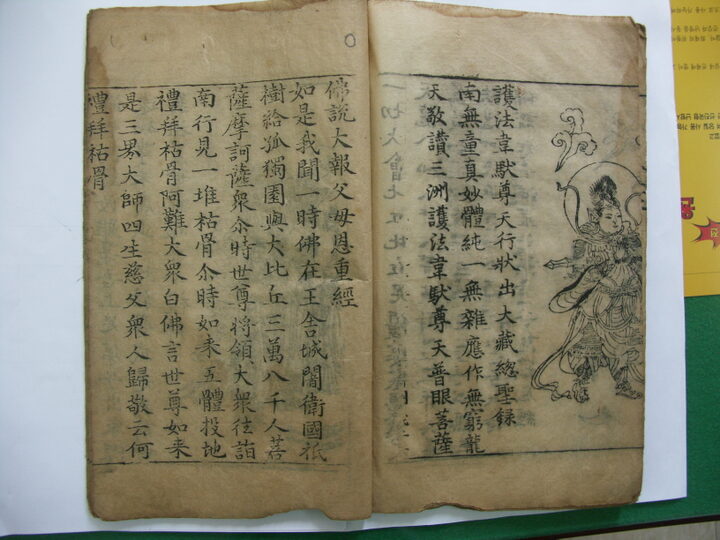 護法韋馱尊天行狀出大藏總聖錄
南無童真妙體純一無雜應作無窮龍
天敬讚三洲護法韋馱尊天普眼菩薩
佛說大報父母恩重經
如是我聞一時佛在王舍城闍衛國祇
樹給孤獨園與大比丘三萬八千人菩
薩摩訶薩衆尒時世尊將領大衆往詣
南行見一堆枯骨尒時如来五體投地
禮拜枯骨阿難大衆白佛言世尊如来
是三界大師四生慈父衆人歸敬云何
禮拜枯骨